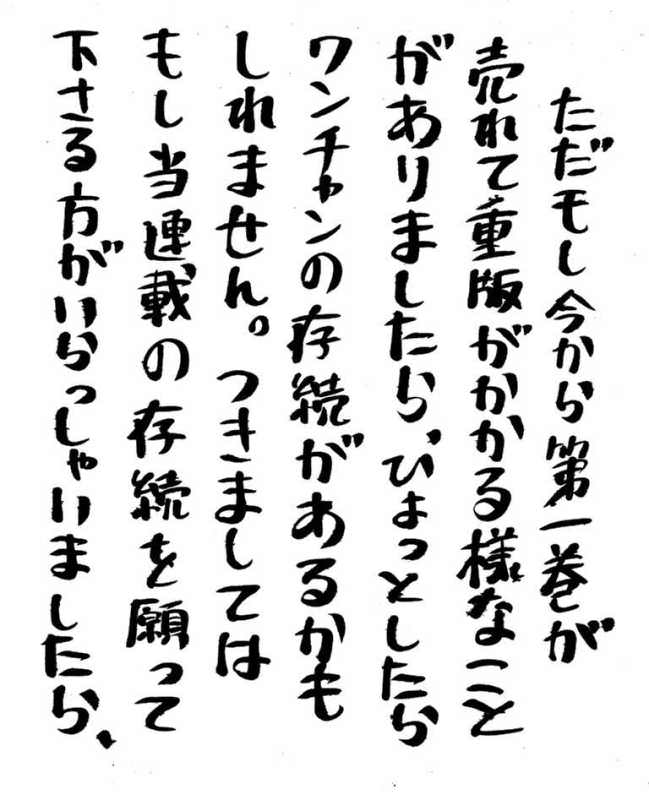 ただもし今から第一巻が
売れて重版がかかる様なこと
がありましたら、ひょっとしたら
ワンチャンの存続があるかも
しれません。つきましては
もし当連載の存続を願って
下さる方がいらっしゃいましたら、